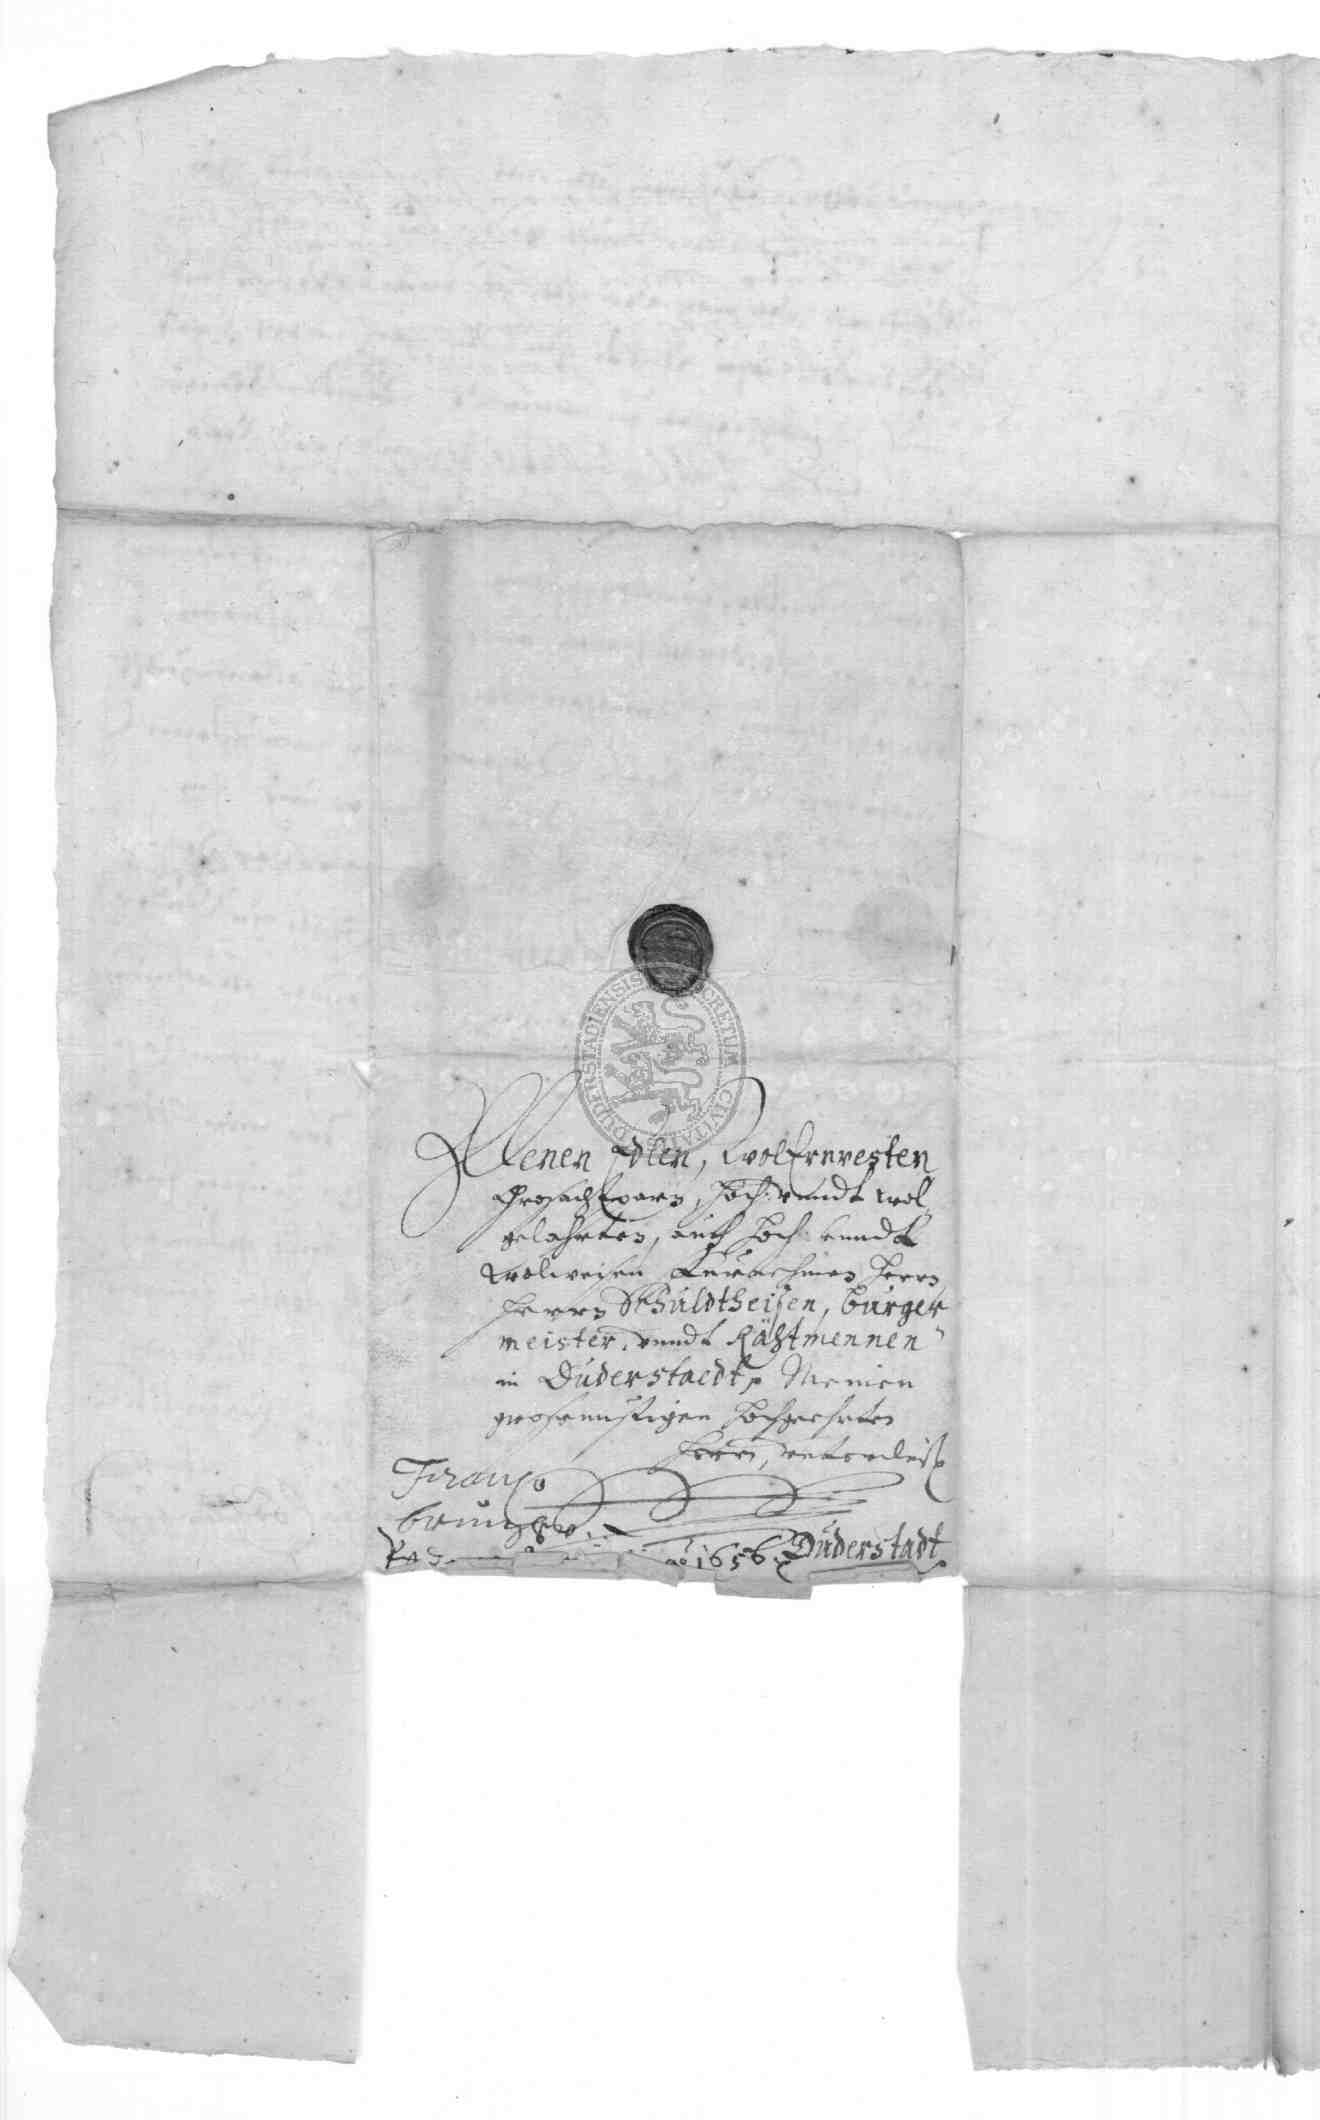 DUDERSTADIENSIS SECRETUM CIVITATIS
Denen Edlen, WolErnvesten
Grosachtparn, Hoch: vnndt wol„
gelahrten, auch Hoch: vnndt
Wolweisen Herrn
Herrn Schuldtheisen, Bürger
meister, vnndt Rahtmennen
in Duderstaedt, Meinen
grosgunstigen Hochgeehrten
Herrn,
Frantz
1656 Duderstadt